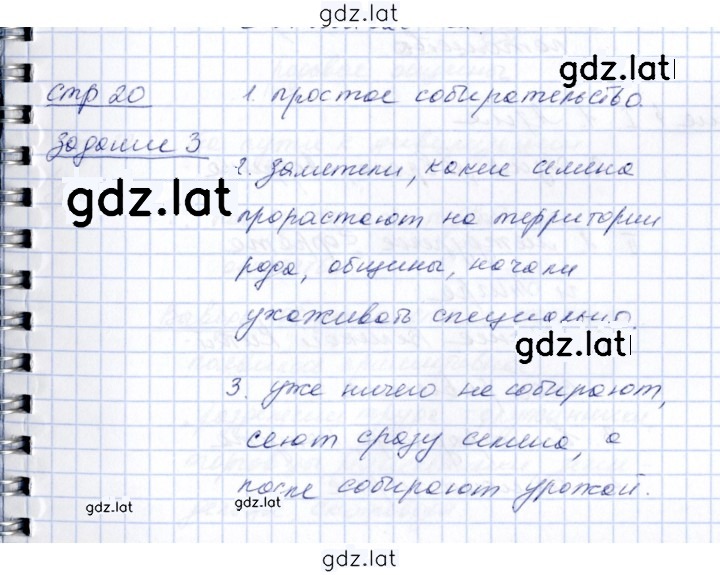 gdz.lat
gdz.lat
стр 20
1. простое собирательство.
задание 3
2. заметели, какие семена
gdz.lat
прорастают на территории
рода, общины, начали
ухаживать специально.
gdz.lat
3. уже ничего не собирают,
сеют сразу семена, а
после собирают урожай.
gdz.lat
gdz.lat
gdz.lat